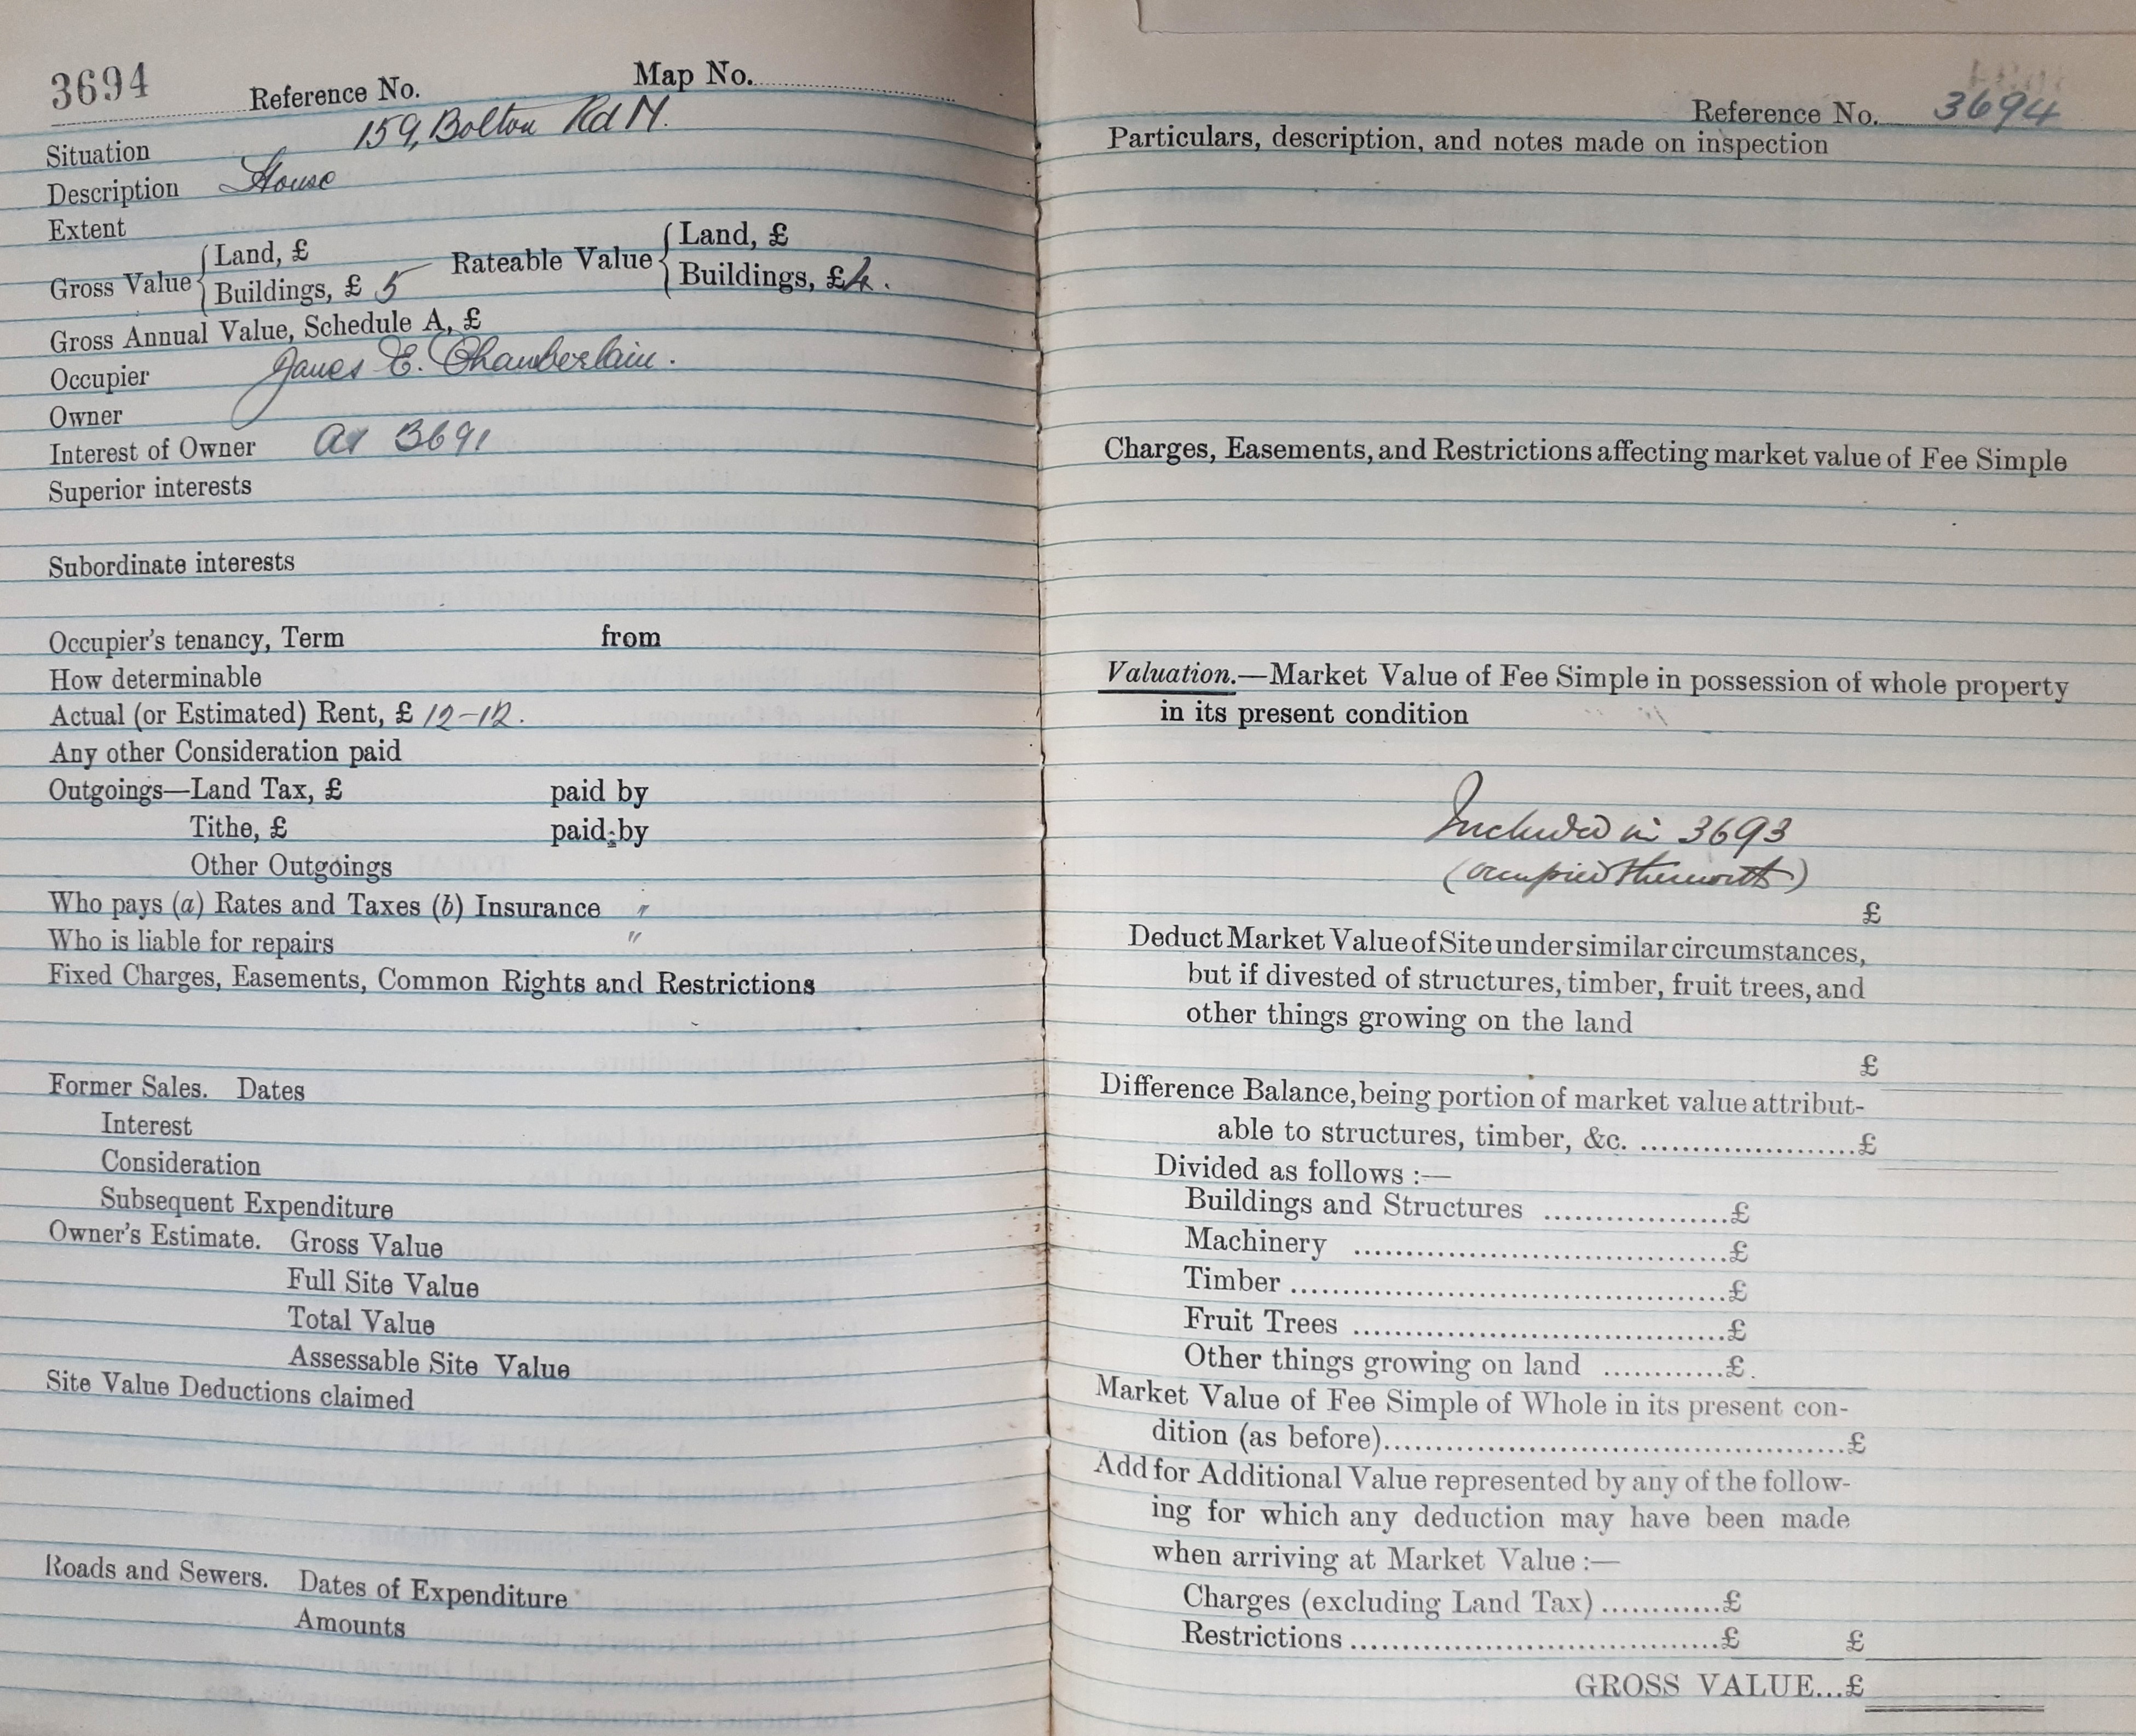 3694 Reference No. Map No.
Situation 159, Bolton Rd N.
Description House
Extent
Gross Value { Land, £ Rateable Value { Land, £
Buildings, £ 5 Buildings, £ 4.
Gross Annual Value, Schedule A, £
Occupier James E. Chamberlain.
Owner
Interest of Owner as 3691
Superior interests
Subordinate interests
Occupier's tenancy, Term from
How determinable
Actual (or Estimated) Rent, £ 12-12.
Any other Consideration paid
Outgoings—Land Tax, £ paid by
Tithe, £ paid by
Other Outgoings
Who pays (a) Rates and Taxes (b) Insurance "
Who is liable for repairs "
Fixed Charges, Easements, Common Rights and Restrictions
Former Sales. Dates
Interest
Consideration
Subsequent Expenditure
Owner's Estimate. Gross Value
Full Site Value
Total Value
Assessable Site Value
Site Value Deductions claimed
Roads and Sewers. Dates of Expenditure
Amounts
Reference No. 3694
Particulars, description, and notes made on inspection
Charges, Easements, and Restrictions affecting market value of Fee Simple
Valuation.—Market Value of Fee Simple in possession of whole property
in its present condition
Included in 3693
(occupied therewith)
£
Deduct Market Value of Site under similar circumstances,
but if divested of structures, timber, fruit trees, and
other things growing on the land
£
Difference Balance, being portion of market value attribut-
able to structures, timber, &c. ......................£
Divided as follows :—
Buildings and Structures ...................£
Machinery .......................................£
Timber .............................................£
Fruit Trees .......................................£
Other things growing on land ............£
Market Value of Fee Simple of Whole in its present con-
dition (as before)................................................£
Add for Additional Value represented by any of the follow-
ing for which any deduction may have been made
when arriving at Market Value :—
Charges (excluding Land Tax) ............£
Restrictions ......................................£ £
GROSS VALUE...£